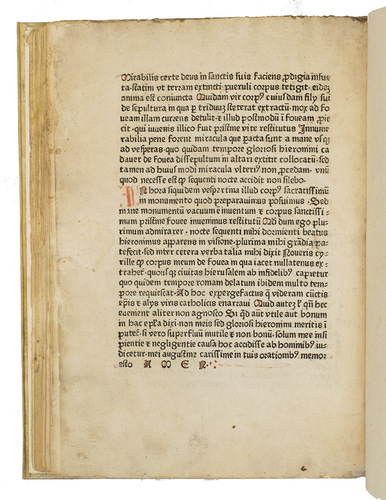 Mirabilis certe deus in sanctis suis faciens ꝓdigia insue
ta. statim ut terram extincti pueruli corpus tetigit. eidē
anima est coniuncta Quidam vir corpꝰ cuiusdam filij sui
de sepultura in qua ꝑ triduū steterat extractū. mox ad fo
ueam illam currens detulit. & illud postmodū ī foueam proie
cit. qui iuuenis illico fuit pristine vite restitutus Innume
rabilia pene forent miracula que facta sunt a mane vsq̄
ad vesperas. quo quidam tempore gloriosi hieronimi ca
dauer de fouea dissepultum in altari extitit collocatū. sed
tamen ad huius modi miracula vlteriꝰ non ꝓcedam. vnū
quod necesse est qd sequenti nocte accidit non silebo.
IN hora siquidem vespertina illud corpꝰ sacratissimū
in monumento quod preparauimus posuimus. Sed
mane monumentū vacuum ē inuentum & corpus sanctissi-
mum pristine fouee inuenimus restitutū Qd dum ego plu
rimum admirarer. nocte sequenti mihi dormienti beatus
hieronimus apparens in visione. plurima mihi grādia pa-
tefecit. sed inter cetera verba talia mihi dixit Noueris cy-
rille qd corpus meum de fouea in qua iacet nullatenus ex
trahet. quousqꝫ ciuitas hierusalem ab infidelibꝰ capietur
quo quidem tempore romam delatum ibidem multo tem-
pore requiescat. Ad hoc expergefactus q̄ videram cūctis
epis & alijs viris catholicis enarraui Quid autez hinc
euenient aliter non agnosco Si qd aūt vtile aut bonum
in hac epła dixi. non meis sed gloriosi hieronimi meritis ī
putet. si vero superfluū inutile & non bonū. solum mee insi
pientie & negligentie causa hoc accidisse ab hominibꝰ iu-
dicetur. mei augustine carissime in tuis orationibꝰ memor
esto A M E N